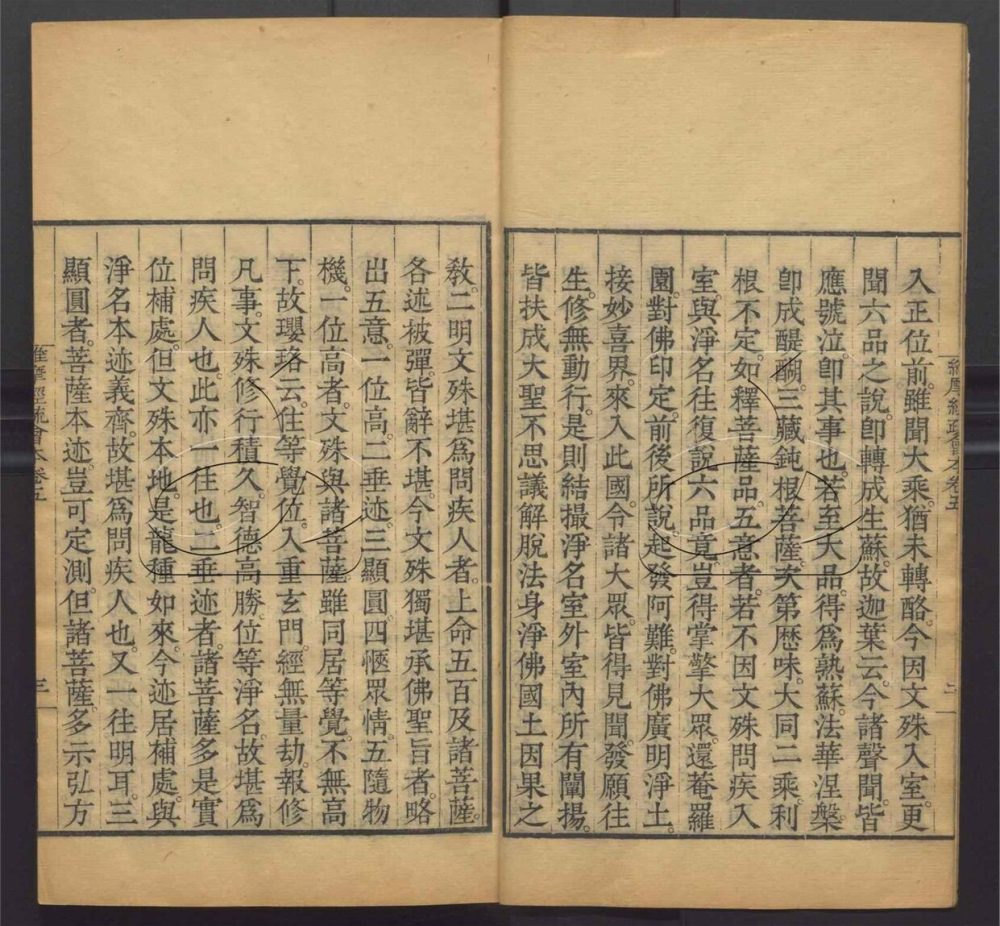 入正位前。雖聞大乘。猶未轉酪。今因文殊入室。更
聞六品之說。卽轉成生蘇。故迦葉云。今諸聲聞。皆
應號泣。卽其事也。若至大品。得爲熟蘇。法華涅槃。
卽成醍醐。三藏鈍根菩薩。次第歷味。大同二乘。利
根不定。如釋菩薩品。五意者。若不因文殊問疾入
室。與淨名往復說六品竟。豈得掌擎大眾。還菴羅
園。對佛印定。前後所說。起發阿難。對佛廣明淨土。
接妙喜界。來入此國。令諸大眾。皆得見聞。發願往
生。修無動行。是則結撮淨名室外室內。所有闡揚。
皆扶成大聖不思議解脫法身淨佛國土因果之
維摩經疏會本卷五
三
敎。二明文殊堪爲問疾人者。上命五百及諸菩薩。
各述被彈。皆辭不堪。今文殊獨堪承佛聖旨者。略
出五意。一位高。二垂迹。三顯圓。四愜眾情。五隨物
機。一位高者。文殊與諸菩薩。雖同居等覺。不無高
下。故瓔珞云。住等覺位。入重玄門。經無量劫。報修
凡事。文殊修行積久。智德高勝。位等淨名。故堪爲
問疾人也。此亦一往也。二垂迹者。諸菩薩多是實
位補處。但文殊本地。是龍種如來。今迹居補處。與
淨名本迹義齊。故堪爲問疾人也。又一往明耳。三
顯圓者。菩薩本迹。豈可定測。但諸菩薩。多示弘方
維摩經疏會本卷五
三